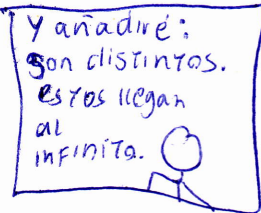 Y añadiré:
son distintos.
estos llegan
al
infinito.